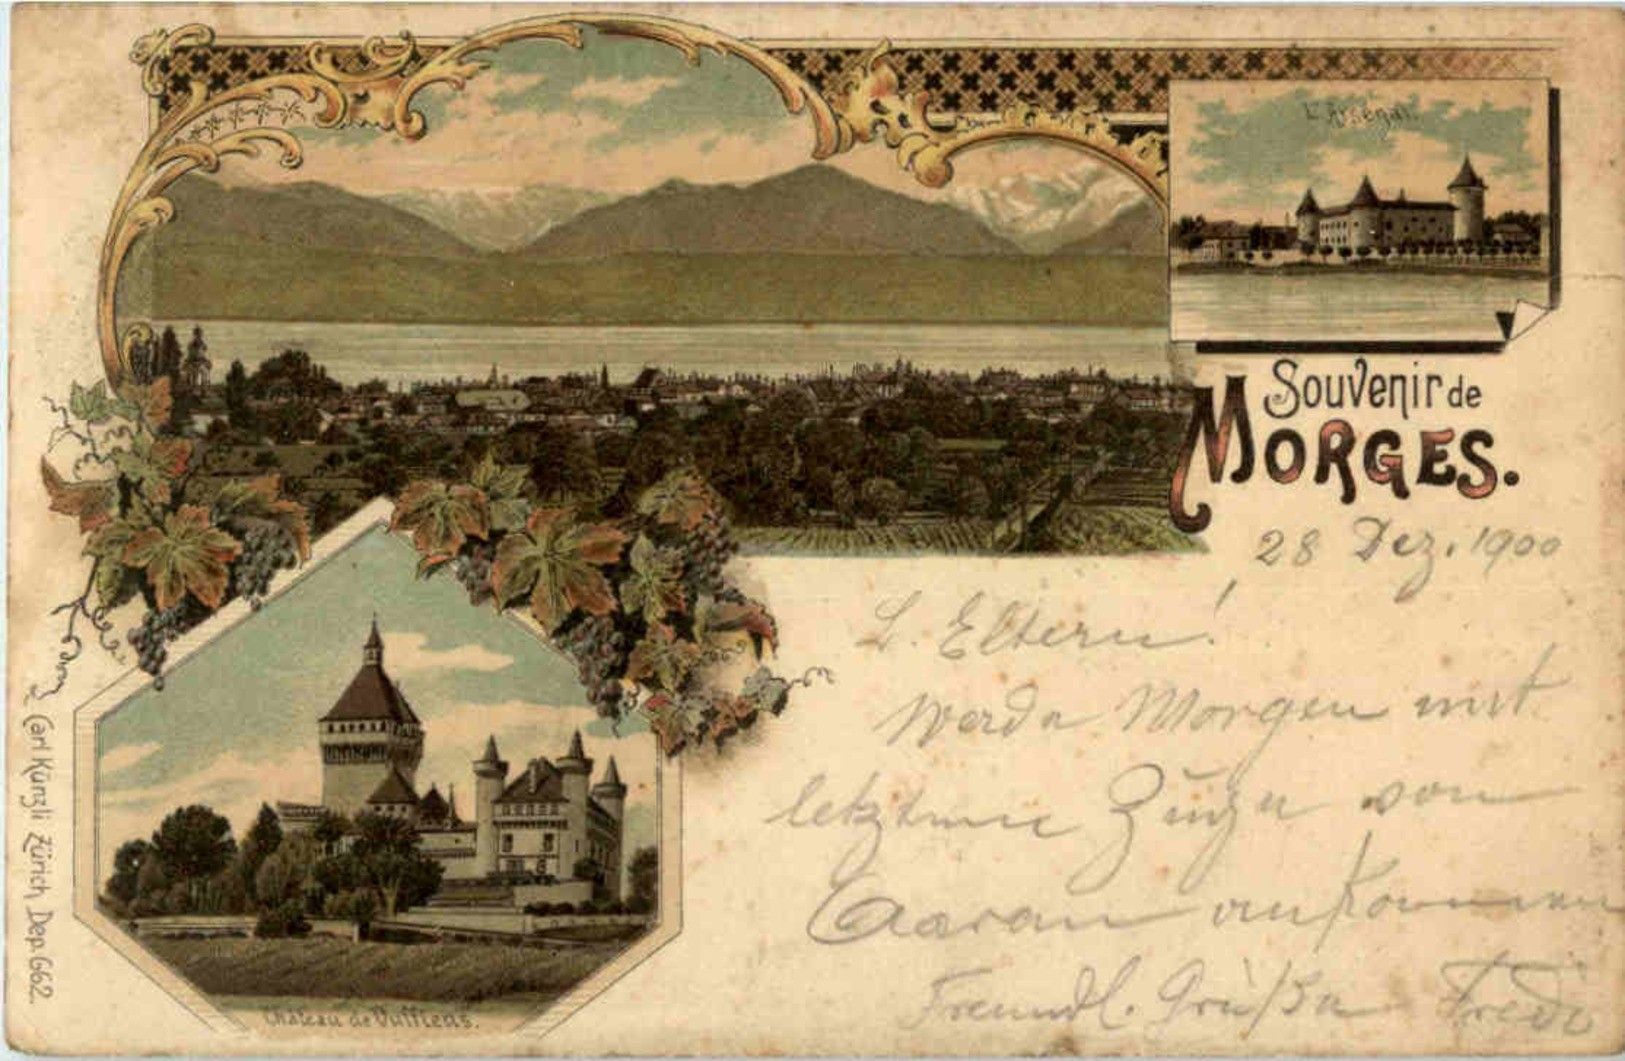 L'Arsenal.
Souvenir de
MORGES.
28 Dez. 1900
L. Eltern!
Werde Morgen mit
letztem Zuge von
Aarau ankommen
Freundl. Grüße Fredi
Château de Vufflens.
Carl Künzli Zürich Dep. 662.